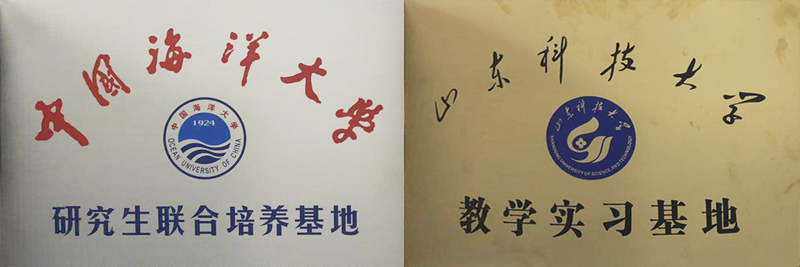 中国海洋大学
中国海洋大学
1924
OCEAN UNIVERSITY OF CHINA
研究生联合培养基地
山东科技大学
山东科技大学
SHANDONG UNIVERSITY OF SCIENCE AND TECHNOLOGY
教学实习基地